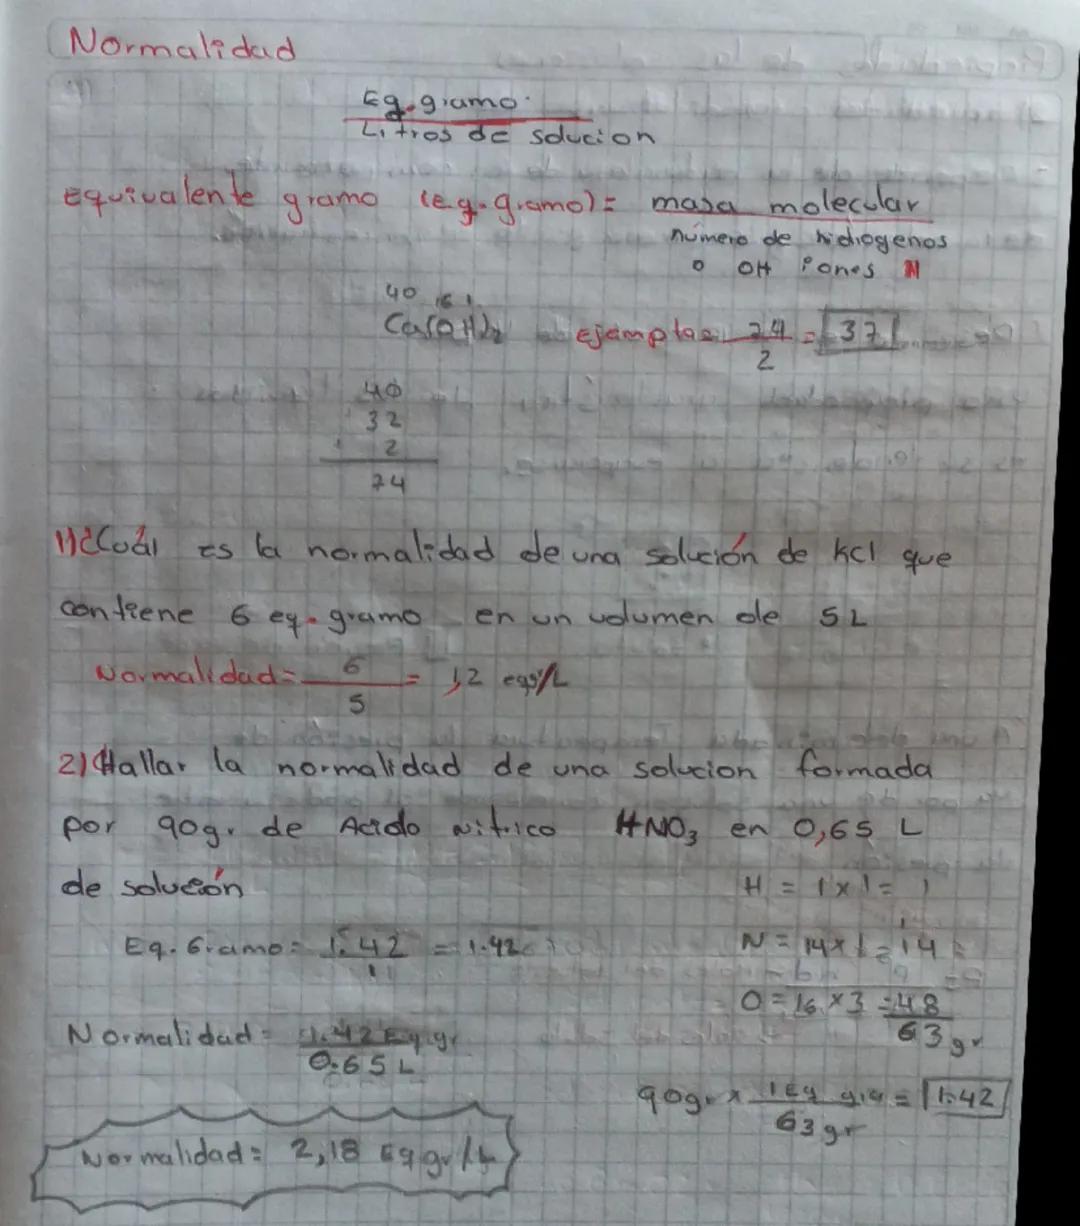 Normalidad
Eq. gramo
Litros de solucion
Equivalente gramo (eq. gramo) = masa molecular
número de hidrogenos
o OH iones N
40 16 1
Ca(OH)2 ejemplos 74/2 = 37
40
32
2
74
1) ¿Cuál es la normalidad de una solución de kcl que
contiene 6 eq. gramo en un volumen de 5 L
Normalidad = 6/5 = 1,2 eqg/L
2) Hallar la normalidad de una solucion formada
por 90gr. de Acido nitrico HNO3 en 0,65 L
de solución
H = 1 x 1 = 1
Eq. Gramo = 1.42/1 = 1.42
N = 14 x 1 = 14
O = 16 x 3 = 48
63 gr
Normalidad = 1.42 Eq.gr / 0.65 L
90gr x 1 Eq gra / 63 gr = 1.42
Normalidad = 2,18 Eq gr/L